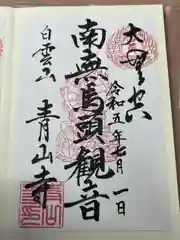 令和五年七月一日
南無馬頭観音
白雲山
青山寺